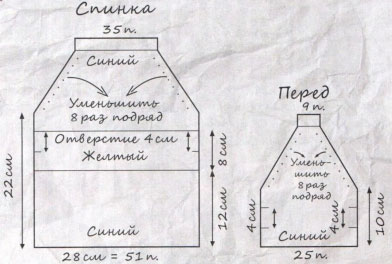 Спинка
35 п.
Синий
Уменьшить
8 раз подряд
Отверстие 4 см
Желтый
22 см
8 см
12 см
Синий
28 см = 51 п.
Перед
9 п.
Умень-
шить
8 раз
подряд
4 см
10 см
Синий
25 п.